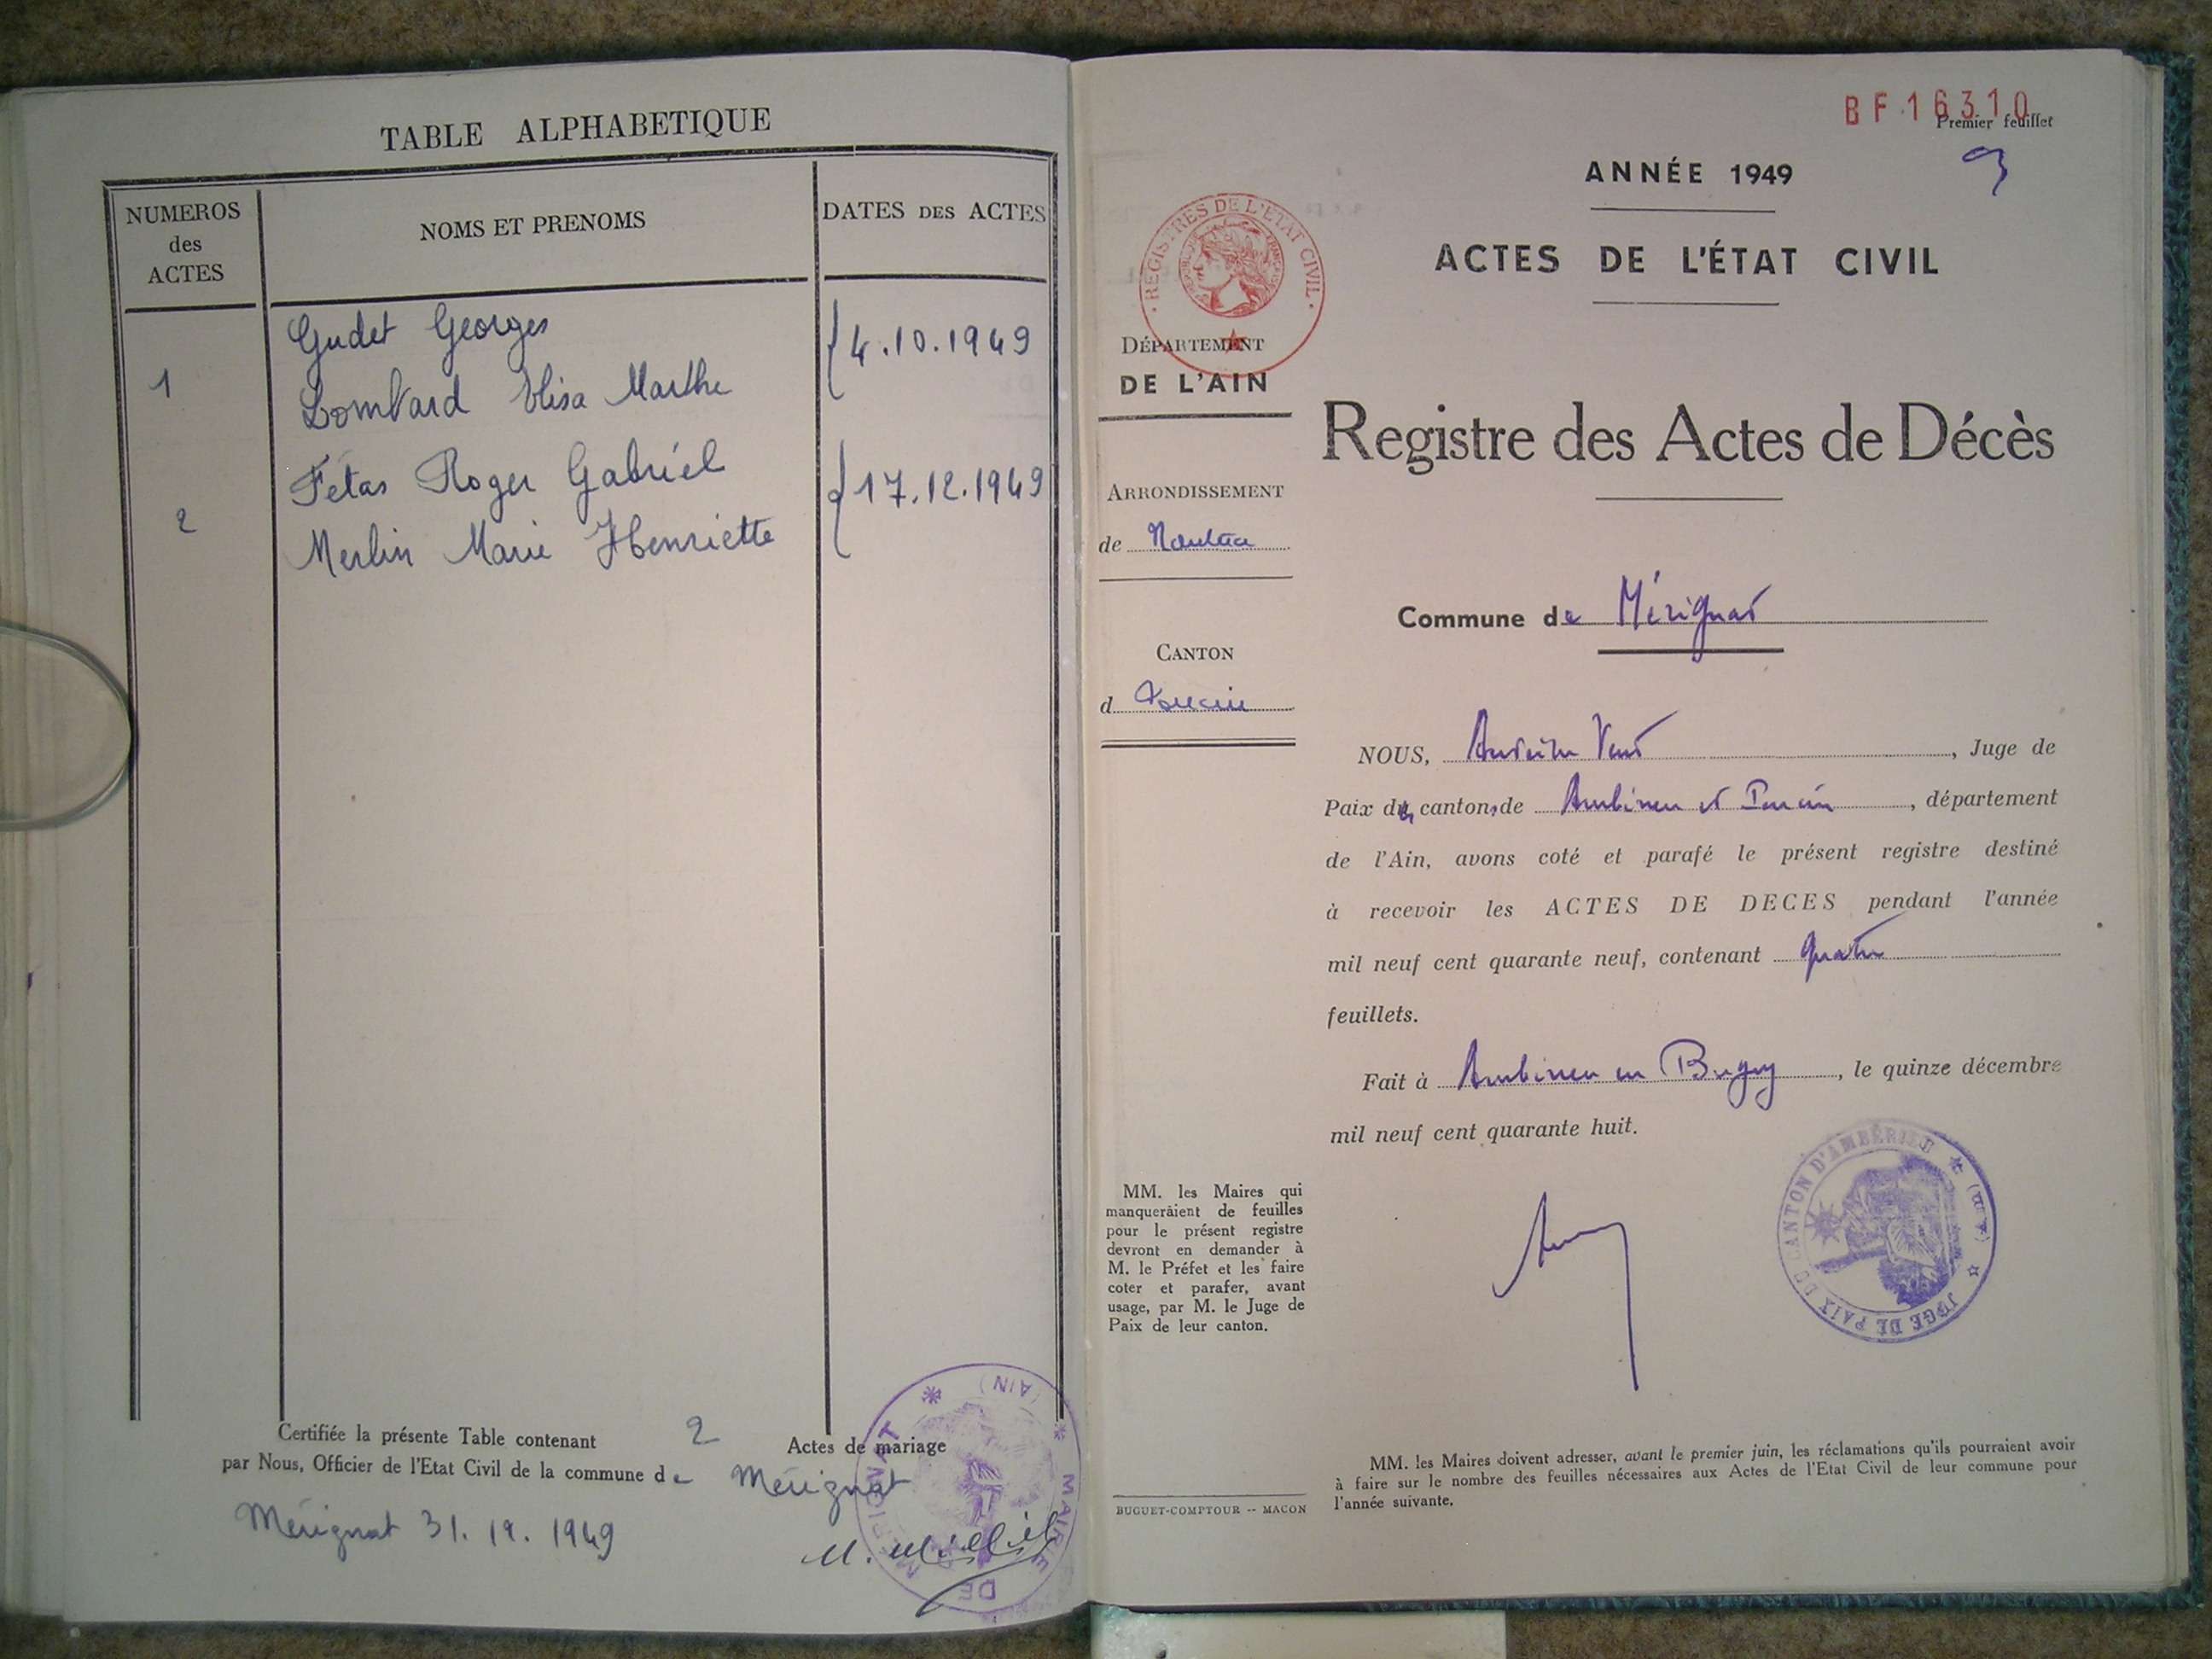 TABLE ALPHABETIQUE
NUMEROS
des
ACTES
NOMS ET PRENOMS
DATES DES ACTES
1
Gudet Georges
Lombard Elisa Marthe
4.10.1949
2
Fétas Roger Gabriel
Merlin Marie Henriette
17.12.1949
Certifiée la présente Table contenant 2 Actes de mariage
par Nous, Officier de l'Etat Civil de la commune de Mérignat
Mérignat 31.12.1949
MAIRIE DE MERIGNAT
(AIN)
BF 16310
Premier feuillet
ANNÉE 1949
ACTES DE L'ÉTAT CIVIL
REGISTRES DE L'ETAT CIVIL
DÉPARTEMENT
DE L'AIN
Registre des Actes de Décès
ARRONDISSEMENT
de Nantua
Commune de Mérignat
CANTON
d Poncin
NOUS, , Juge de
Paix des cantons de Ambérieu et Poncin, département
de l'Ain, avons coté et parafé le présent registre destiné
à recevoir les ACTES DE DECES pendant l'année
mil neuf cent quarante neuf, contenant quatre
feuillets.
Fait à Ambérieu en Bugey, le quinze décembre
mil neuf cent quarante huit.
JUGE DE PAIX DU CANTON D'AMBÉRIEU (AIN)
MM. les Maires qui
manqueraient de feuilles
pour le présent registre
devront en demander à
M. le Préfet et les faire
coter et parafer, avant
usage, par M. le Juge de
Paix de leur canton.
MM. les Maires doivent adresser, avant le premier juin, les réclamations qu'ils pourraient avoir
à faire sur le nombre des feuilles nécessaires aux Actes de l'Etat Civil de leur commune pour
l'année suivante.
BUGUET-COMPTOUR -- MACON